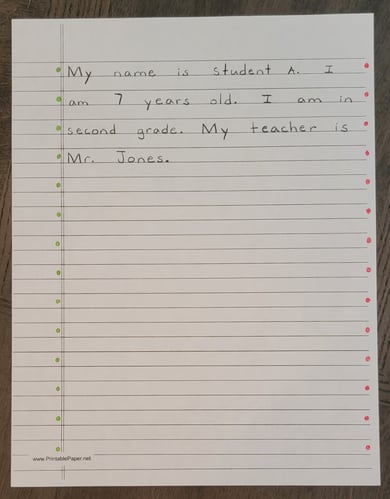 My name is student A. I
am 7 years old. I am in
second grade. My teacher is
Mr. Jones.
www.PrintablePaper.net